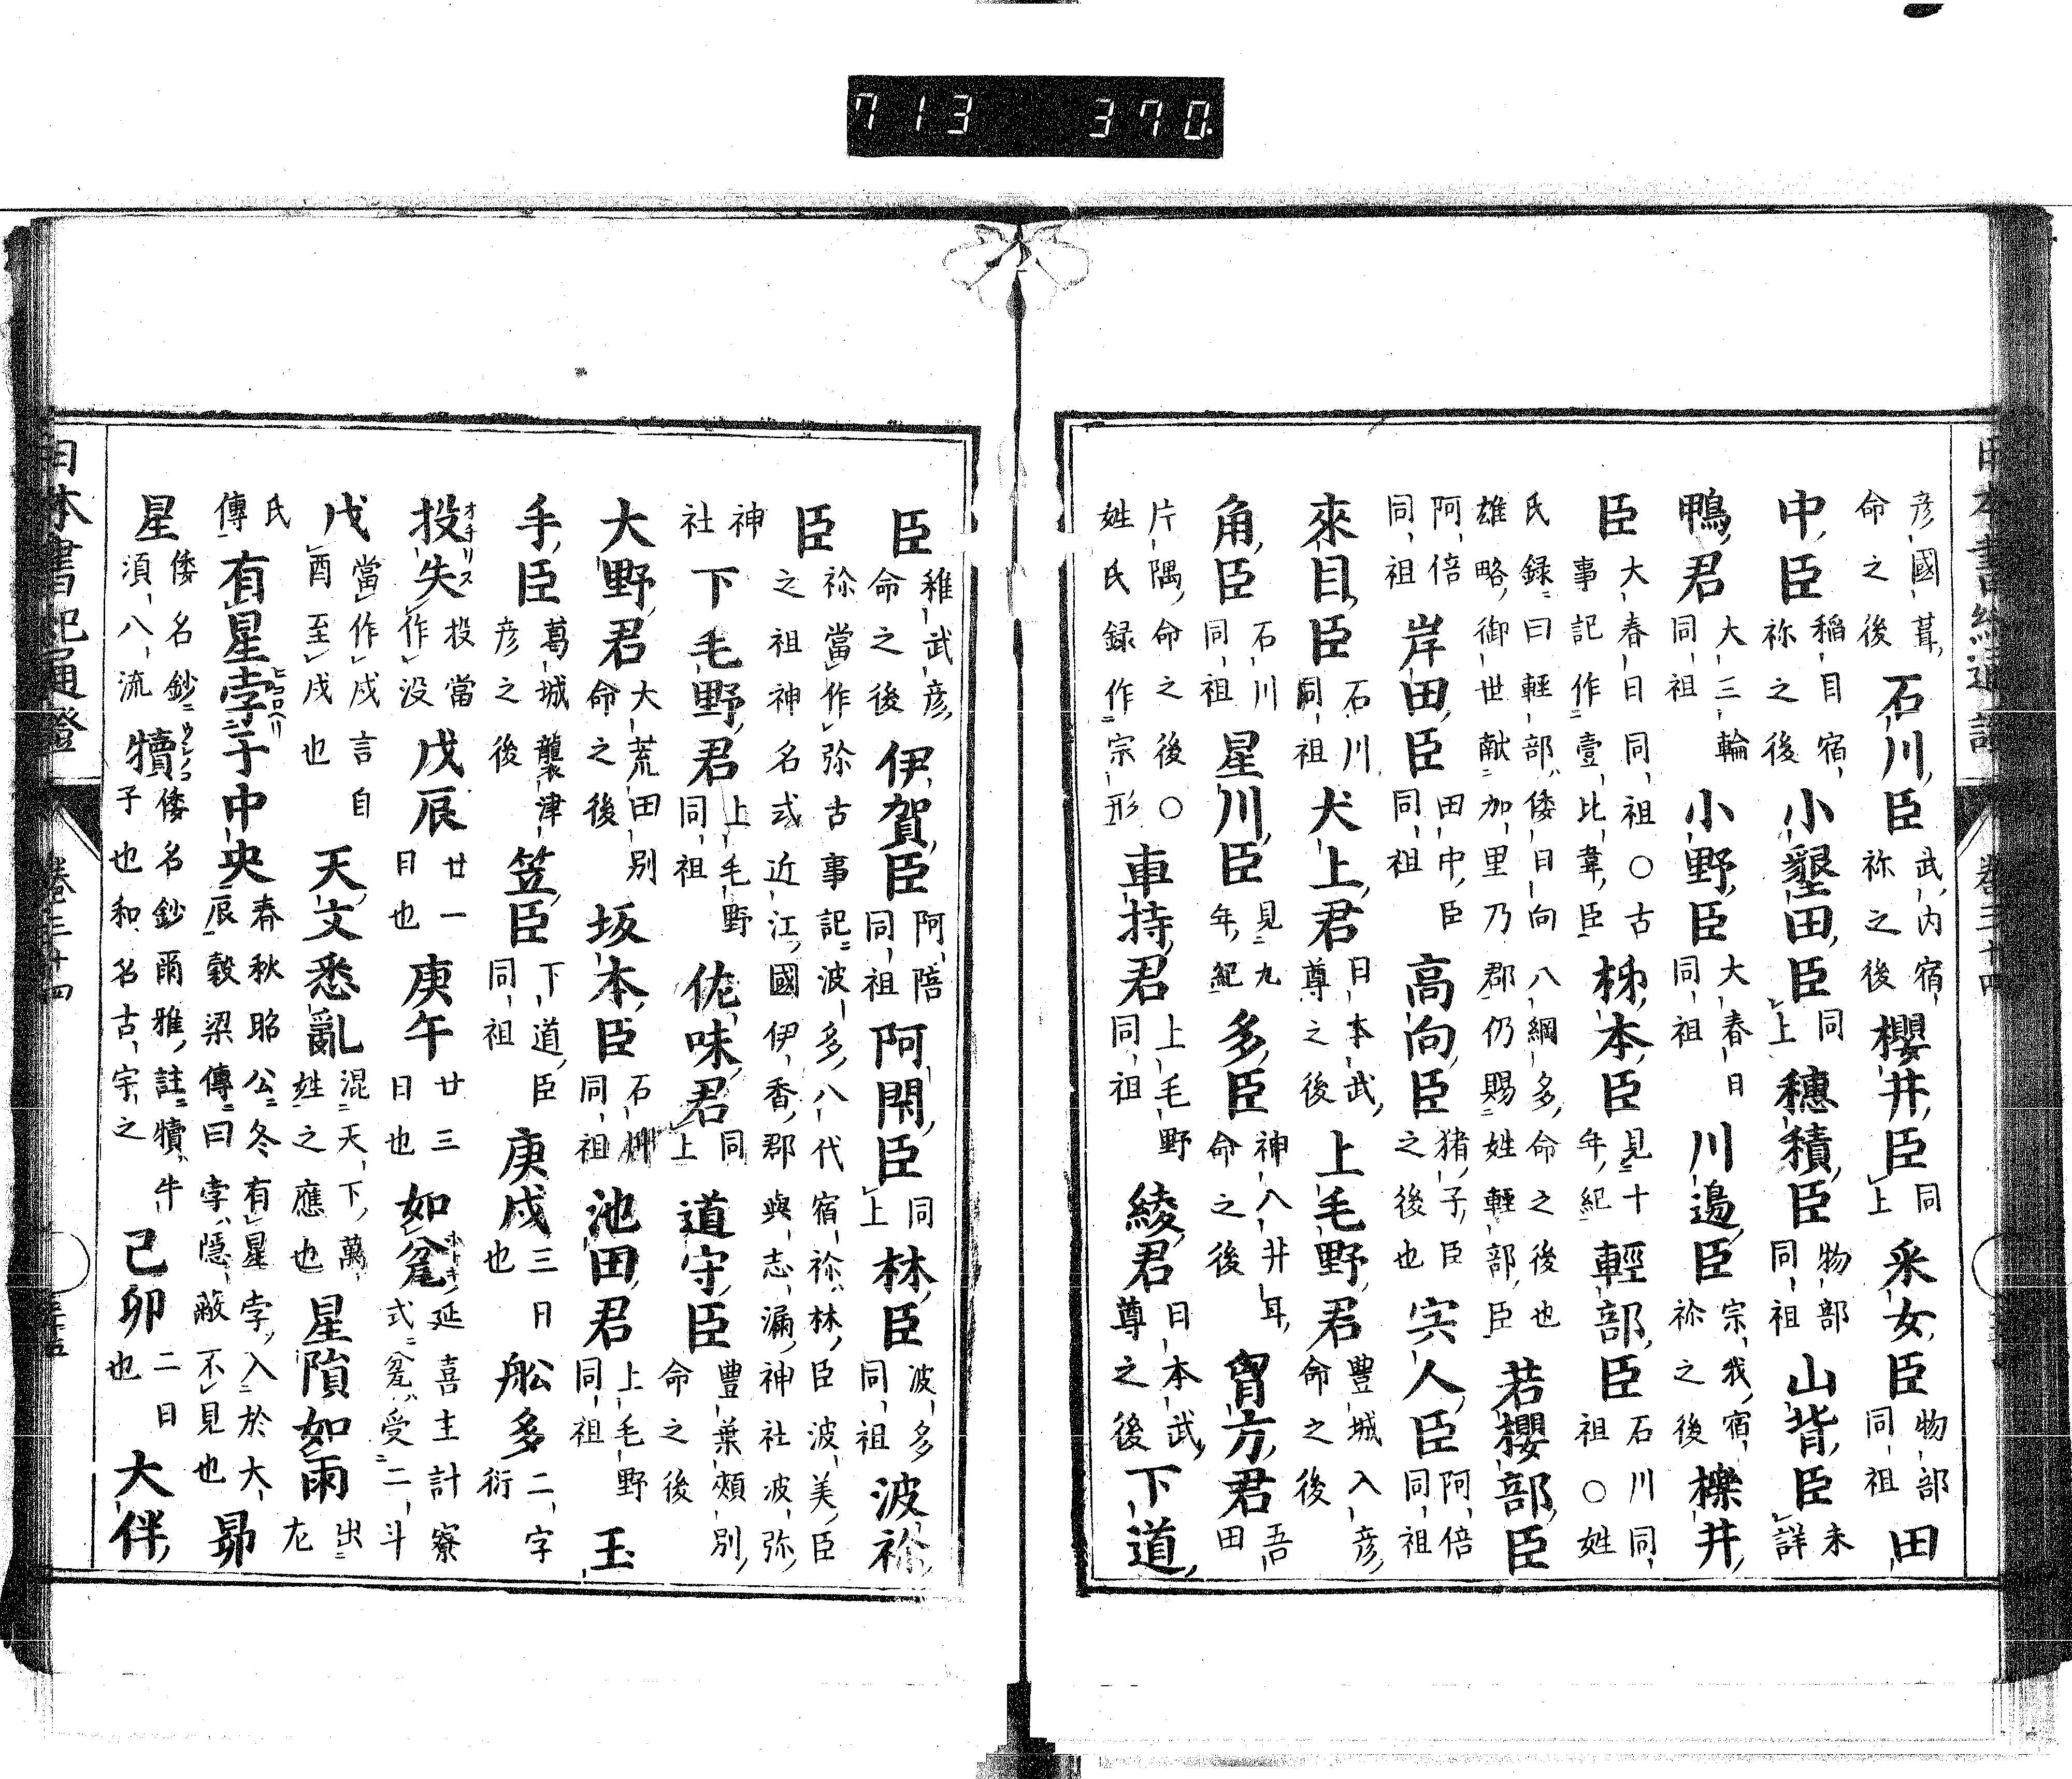 日本書紀通證 卷三十四
彦國葺命之後石川臣武内宿祢之後櫻井臣同上采女臣物部同祖田
中臣稲目宿祢之後小墾田臣同上穗積臣物部同祖山背臣未詳
鴨君大三輪同祖小野臣大春日同祖川邉臣宗我宿祢之後櫟井
臣大春日同祖○古事記作壹比韋臣柹本臣見十年紀輕部臣石川同祖○姓
氏録曰輕部倭日向八綱多命之後也雄略御世献加里乃郡仍賜姓輕部臣若櫻部臣
阿倍同祖岸田臣田中臣同祖高向臣猪子臣之後也宍人臣阿倍同祖
來目臣石川同祖犬上君日本武尊之後上毛野君豊城入彦命之後
角臣石川同祖星川臣見九年紀多臣神八井耳命之後胷方君吾田
片隅命之後○姓氏録作宗形車持君上毛野同祖綾君日本武尊之後下道
臣稚武彦命之後伊賀臣阿陪同祖阿閇臣同上林臣波多同祖波祢
臣祢當作弥古事記波多八代宿祢林臣波美臣之祖神名式近江國伊香郡與志漏神社波弥
神社下毛野君上毛野同祖佐味君同上道守臣豊葉頰別命之後
大野君大荒田別命之後坂本臣石川同祖池田君上毛野同祖玉
手臣葛城襲津彦之後笠臣下道臣同祖庚戌三日也舩多二字衍
投失オチリス投當作没戊辰廿一日也庚午廿三日也如瓫ホトキノ延喜主計寮式瓫受二斗
戊當作戌言自酉至戌也天文悉亂混天下萬姓之應也星隕如雨出左
氏傳有星孛ヒコロヘリ于中央春秋昭公冬有星孛入於大辰穀梁傳曰孛隠蔽不見也昴
星倭名鈔須八流犢ウシノコ倭名鈔爾雅註犢牛子也和名古宇之己卯二日也大伴
日本書紀通證 卷三十四 三十五